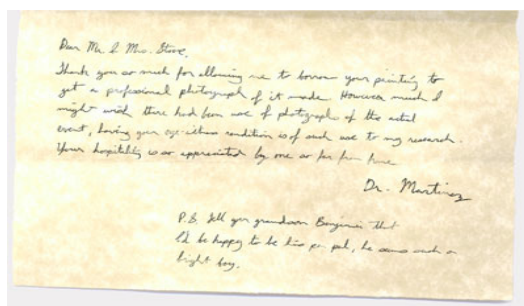 Dear Mr. & Mrs. Stowe,
Thank you so much for allowing me to borrow your painting to
get a professional photograph of it made. However much I
might wish there had been use of photographs of the actual
event, having your eye-witness rendition is of such use to my research.
Your hospitality is so appreciated by one so far from home
Dr. Martinez
P.S. Tell your grandson Benjamin that
I'd be happy to be his pen pal, he seems such a
bright boy.